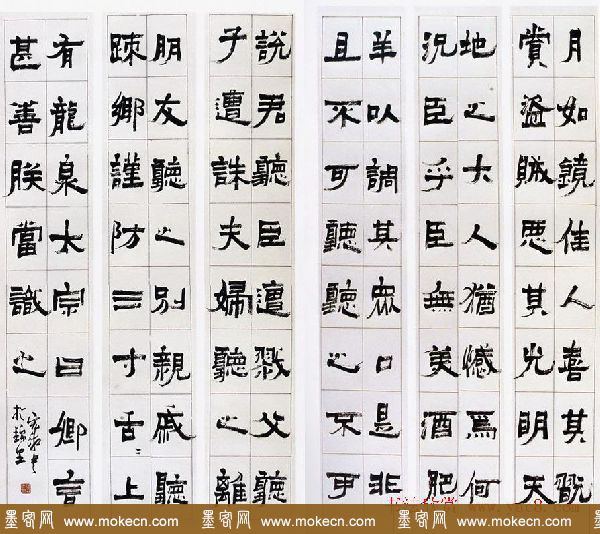 月如鏡佳人喜其翫
賞盜賊惡其光明天
地之大人猶憾爲何
況臣乎臣無美酒肥
羊以調其眾口是非
且不可聽聽之不可
說君聽臣遭戮父聽
子遭誅夫婦聽之離
朋友聽之別親戚聽
踈鄉謹防三寸舌上
有龍泉太宗曰卿言
甚善朕當識之
墨客网 www.mokecn.com
墨客网 www.mokecn.com